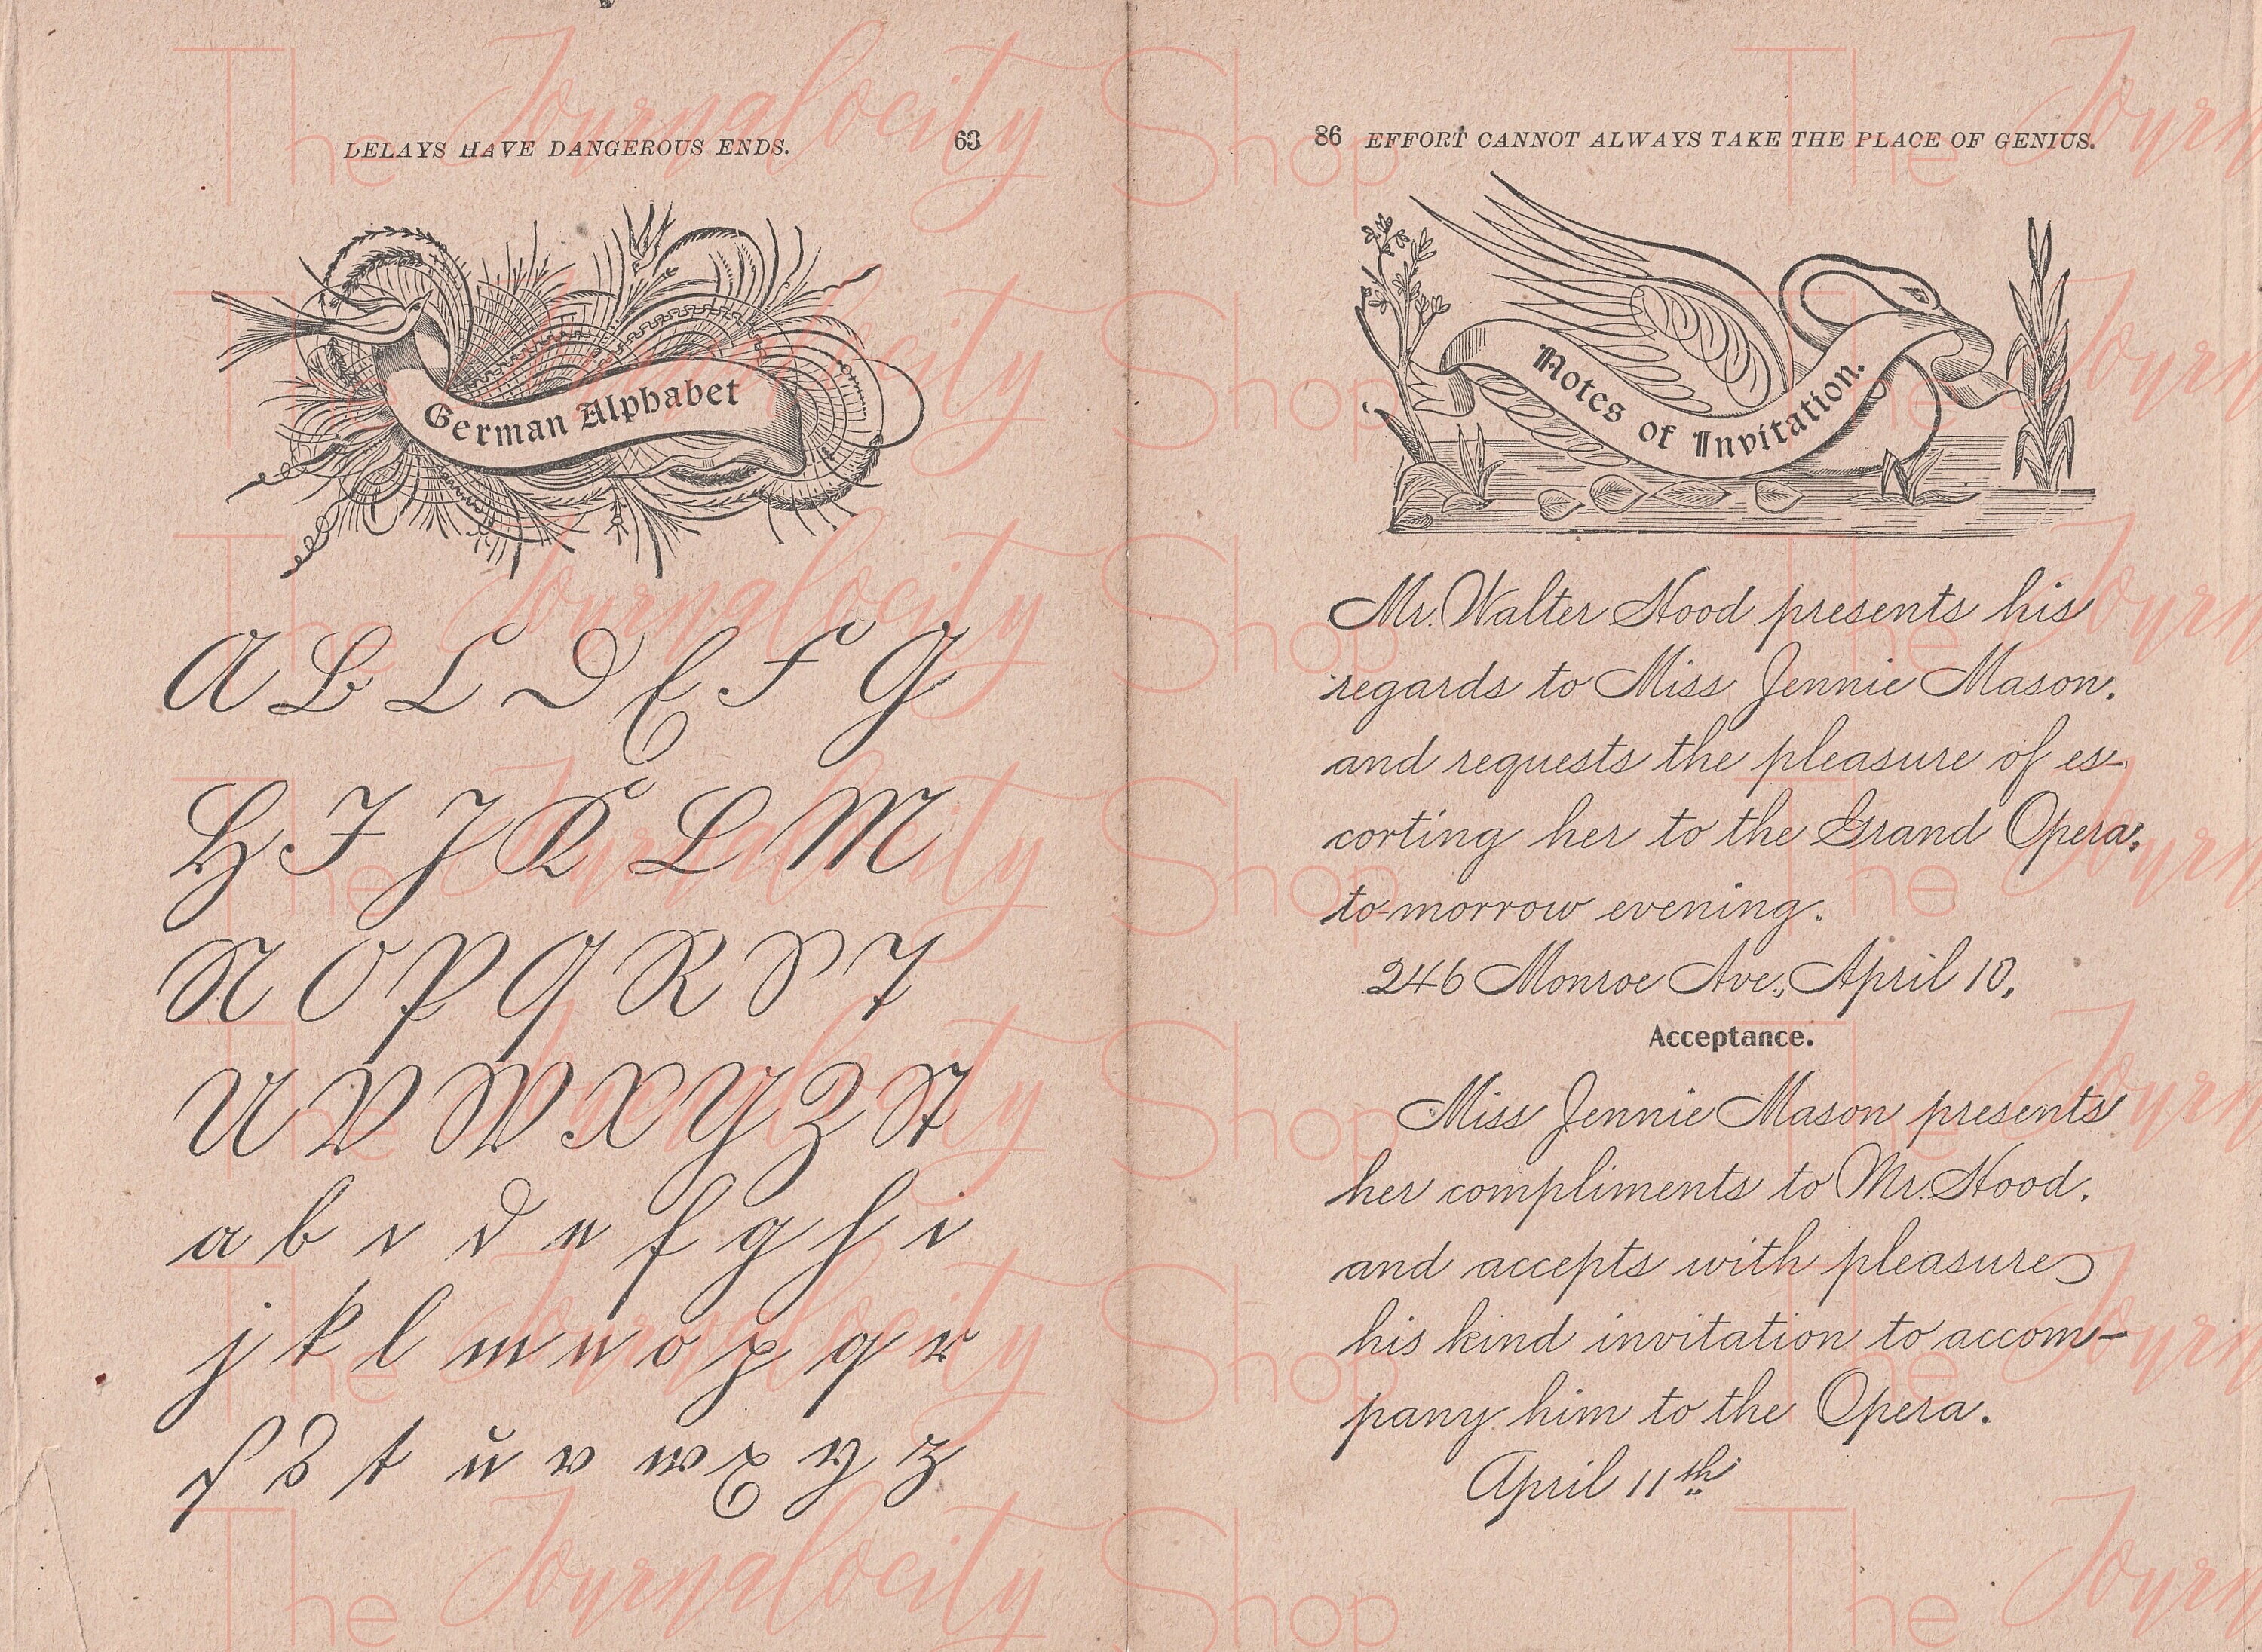 DELAYS HAVE DANGEROUS ENDS. 63
German Alphabet
A B C D E F G
H I J K L M
N O P Q R S T
U V W X Y Z St
a b c d e f g h i
j k l m n o p q r
s s t u v w x y z
86 EFFORT CANNOT ALWAYS TAKE THE PLACE OF GENIUS.
Notes of Invitation.
Mr. Walter Hood presents his
regards to Miss Jennie Mason,
and requests the pleasure of es-
corting her to the Grand Opera,
to-morrow evening.
246 Monroe Ave., April 10,
Acceptance.
Miss Jennie Mason presents
her compliments to Mr. Hood,
and accepts with pleasure
his kind invitation to accom-
pany him to the Opera.
April 11th
The Journalocity Shop